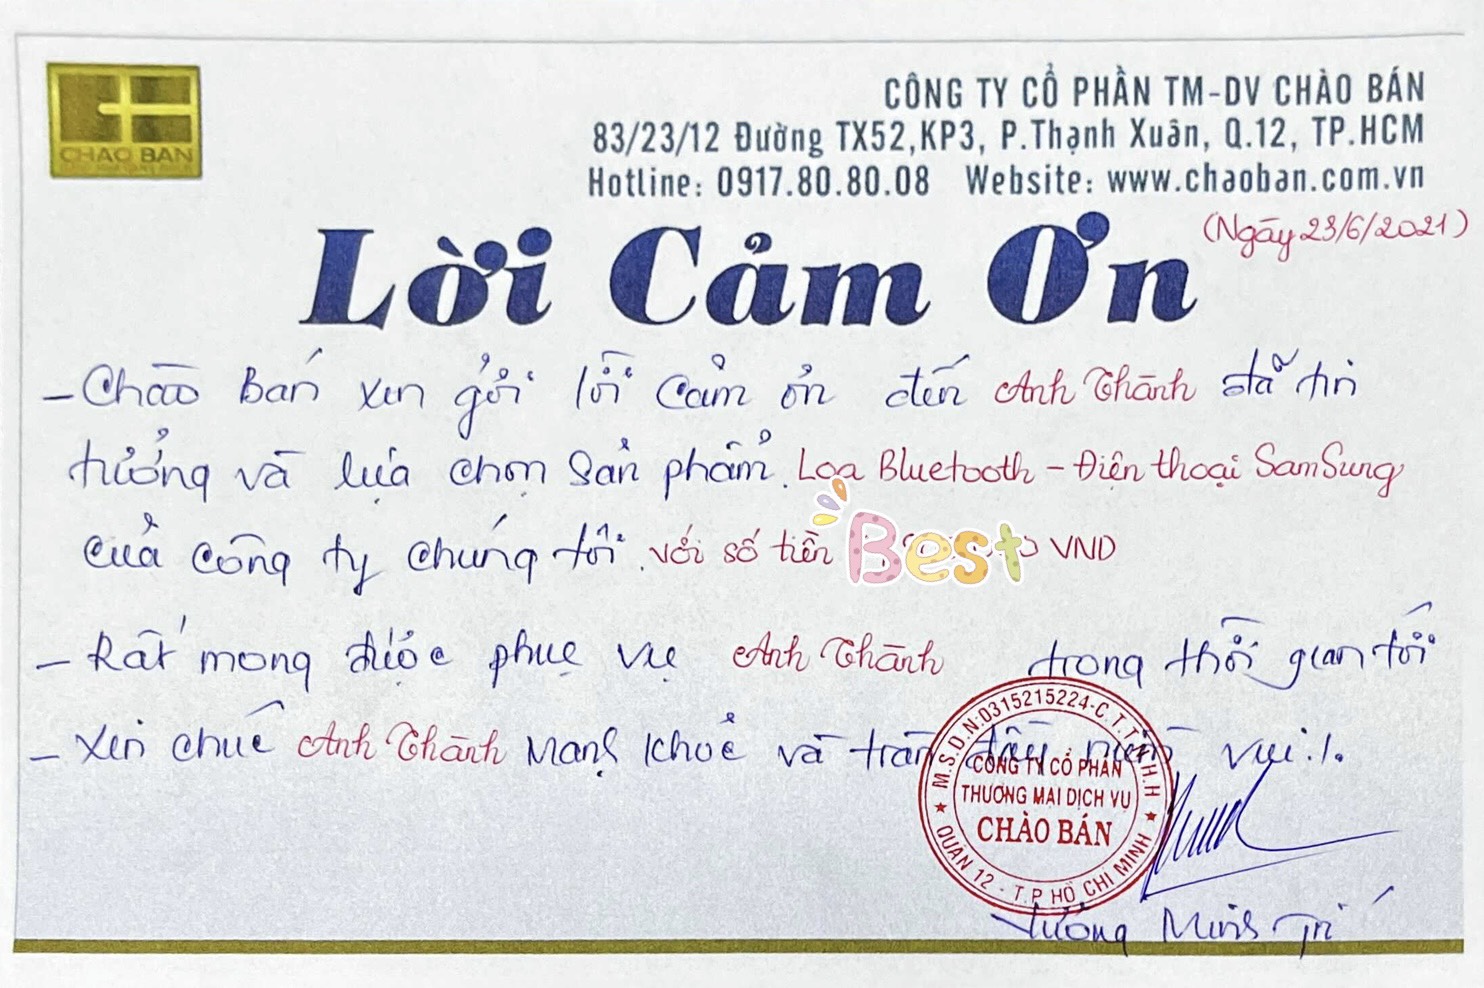 CHAO BAN
CÔNG TY CỔ PHẦN TM-DV CHÀO BÁN
83/23/12 Đường TX52,KP3, P.Thạnh Xuân, Q.12, TP.HCM
Hotline: 0917.80.80.08 Website: www.chaoban.com.vn
(Ngày 23/6/2021)
Lời Cảm Ơn
- Chào Bán xin gởi lời cảm ơn đến Anh Thành đã tin
tưởng và lựa chọn sản phẩm. Loa Bluetooth - Điện thoại SamSung
của công ty chúng tôi. với số tiền Best VND
- Rất mong được phục vụ Anh Thành trong thời gian tới
- Xin chúc Anh Thành mạnh khoẻ và tràn đầy niềm vui./.
M.S.D.N:0315215224-C.T.T.N.H.H
CÔNG TY CỔ PHẦN
THƯƠNG MẠI DỊCH VỤ
CHÀO BÁN
QUẬN 12 - T.P HỒ CHÍ MINH
Tưởng Minh Trí